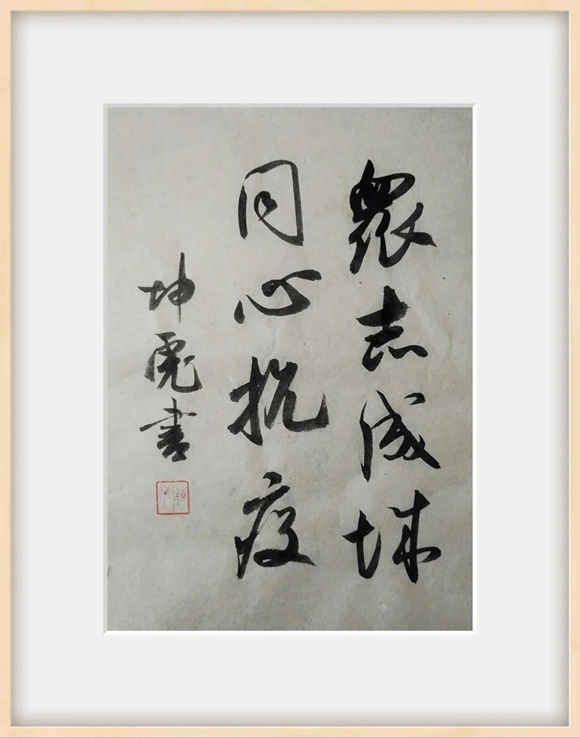 眾志成城
同心抗疫
坤彪書